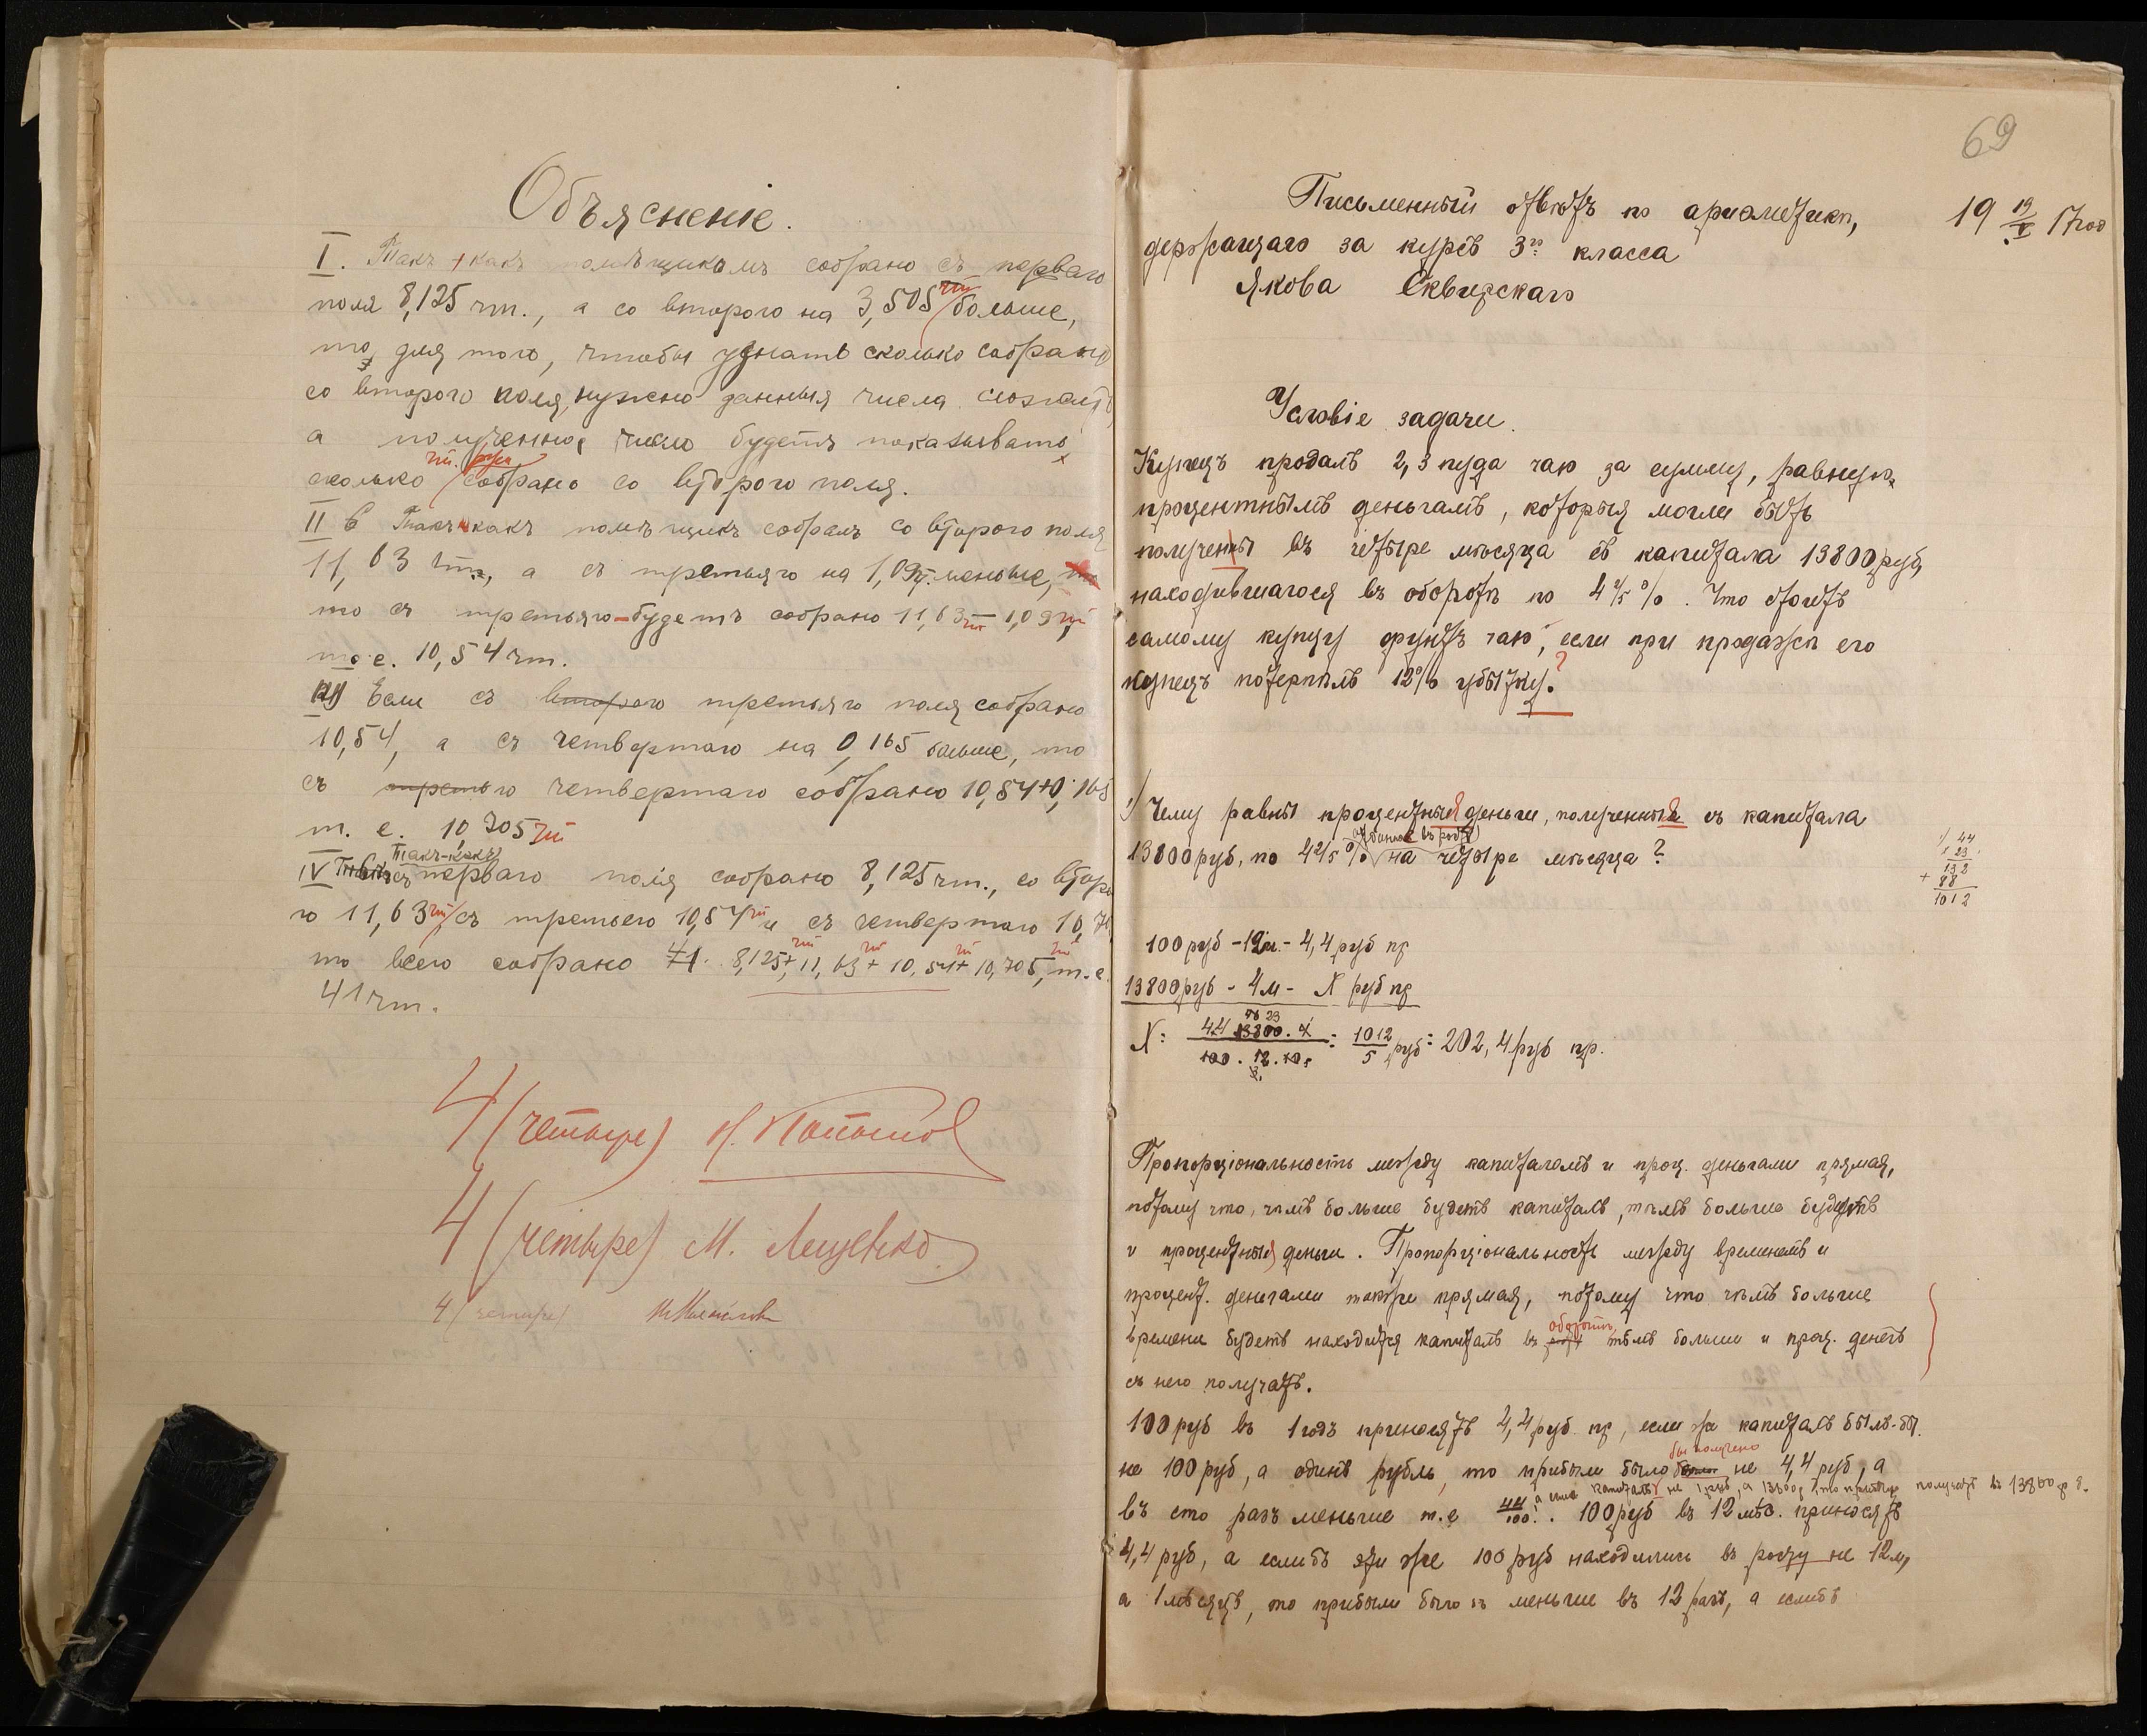 Объясненіе.
I. Такъ какъ помѣщикомъ собрано съ перваго
поля 8,125 чт., а со второго на 3,505 чт больше,
то для того, чтобы узнать сколько собрано
со второго поля, нужно данныя числа сложить,
а полученное число будетъ показывать,
сколько чт. ржи собрано со второго поля.
II Такъ какъ помѣщикъ собралъ со второго поля
11,63 чт., а съ третьяго на 1,09 чт. меньше,
то съ третьяго будетъ собрано 11,63 чт – 1,09 чт,
то е. 10,54 чт.
III Если съ второго третьяго поля собрано
10,54, а съ четвертаго на 0,165 больше, то
съ третьяго четвертаго собрано 10,54+0,165
т. е. 10,705 чт
Такъ-какъ
IV съ перваго поля собрано 8,125 чт., со второ
го 11,63 чт, съ третьего 10,54 чт и съ четвертаго 10,70
то всего собрано 41. 8,125 чт + 11,63 чт + 10,54 чт + 10,705 чт, т. е.
41 чт.
4 (четыре)
4 (четыре) М. Лещенко
4 (четыре)
69
Письменный отвѣтъ по ариѳметикѣ, 19 19/V 17 год
держащаго за курсъ 3го класса
Якова Сквирскаго
Условіе задачи.
Купецъ продалъ 2,3 пуда чаю за сумму, равную
процентнымъ деньгамъ, которыя могли быть
получены въ четыре мѣсяца съ капитала 13800 руб,
находившагося въ оборотѣ по 4 2/5 %. Что стоитъ
самому купцу фунтъ чаю, если при продажѣ его
купецъ потерпѣлъ 12% убытку?
1) Чему равны процентныя деньги, полученныя съ капитала
13800 руб, по 4 2/5 % на четыре мѣсяца?
1) 44
× 23
132
+ 88
1012
100 руб – 12 м. – 4,4 руб пр
13800 руб – 4 м – X руб пр
46 23
X = 44 13800 . 4 / 100 . 12 . 10 5 = 1012/5 руб = 202,4 руб пр.
3
Пропорціональность между капиталомъ и проц. деньгами прямая,
потому что, чѣмъ больше будетъ капиталъ, тѣмъ больше будутъ
и процентныя деньги. Пропорціональность между временемъ и
процент. деньгами также прямая, потому что чѣмъ больше
времени будетъ находится капиталъ въ оборотѣ, тѣмъ больше и проц. денегъ
съ него получатъ.
100 руб въ 1 годъ приносятъ 4,4 руб пр, если же капиталъ былъ-бы
не 100 руб, а одинъ рубль, то прибыли было бы получено не 4,4 руб, а
а если капиталъ не 1 руб, а 13800 р, то прибыли получатъ въ 13800 р б.
въ сто разъ меньше т. е 44/100. 100 руб въ 12 мѣс. приносятъ
4,4 руб, а еслибъ эти же 100 руб находились въ росту не 12 м,
а 1 мѣсяцъ, то прибыли было бъ меньше въ 12 разъ, а еслибъ